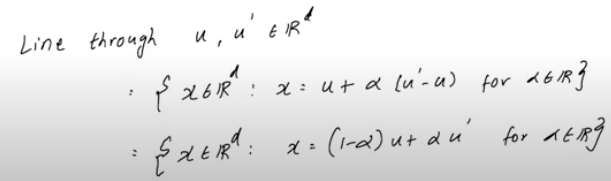 Line through u, u' ∈ ℝᵈ
: { x ∈ ℝᵈ : x = u + α (u'-u) for α ∈ ℝ }
: { x ∈ ℝᵈ : x = (1-α) u + α u' for α ∈ ℝ }